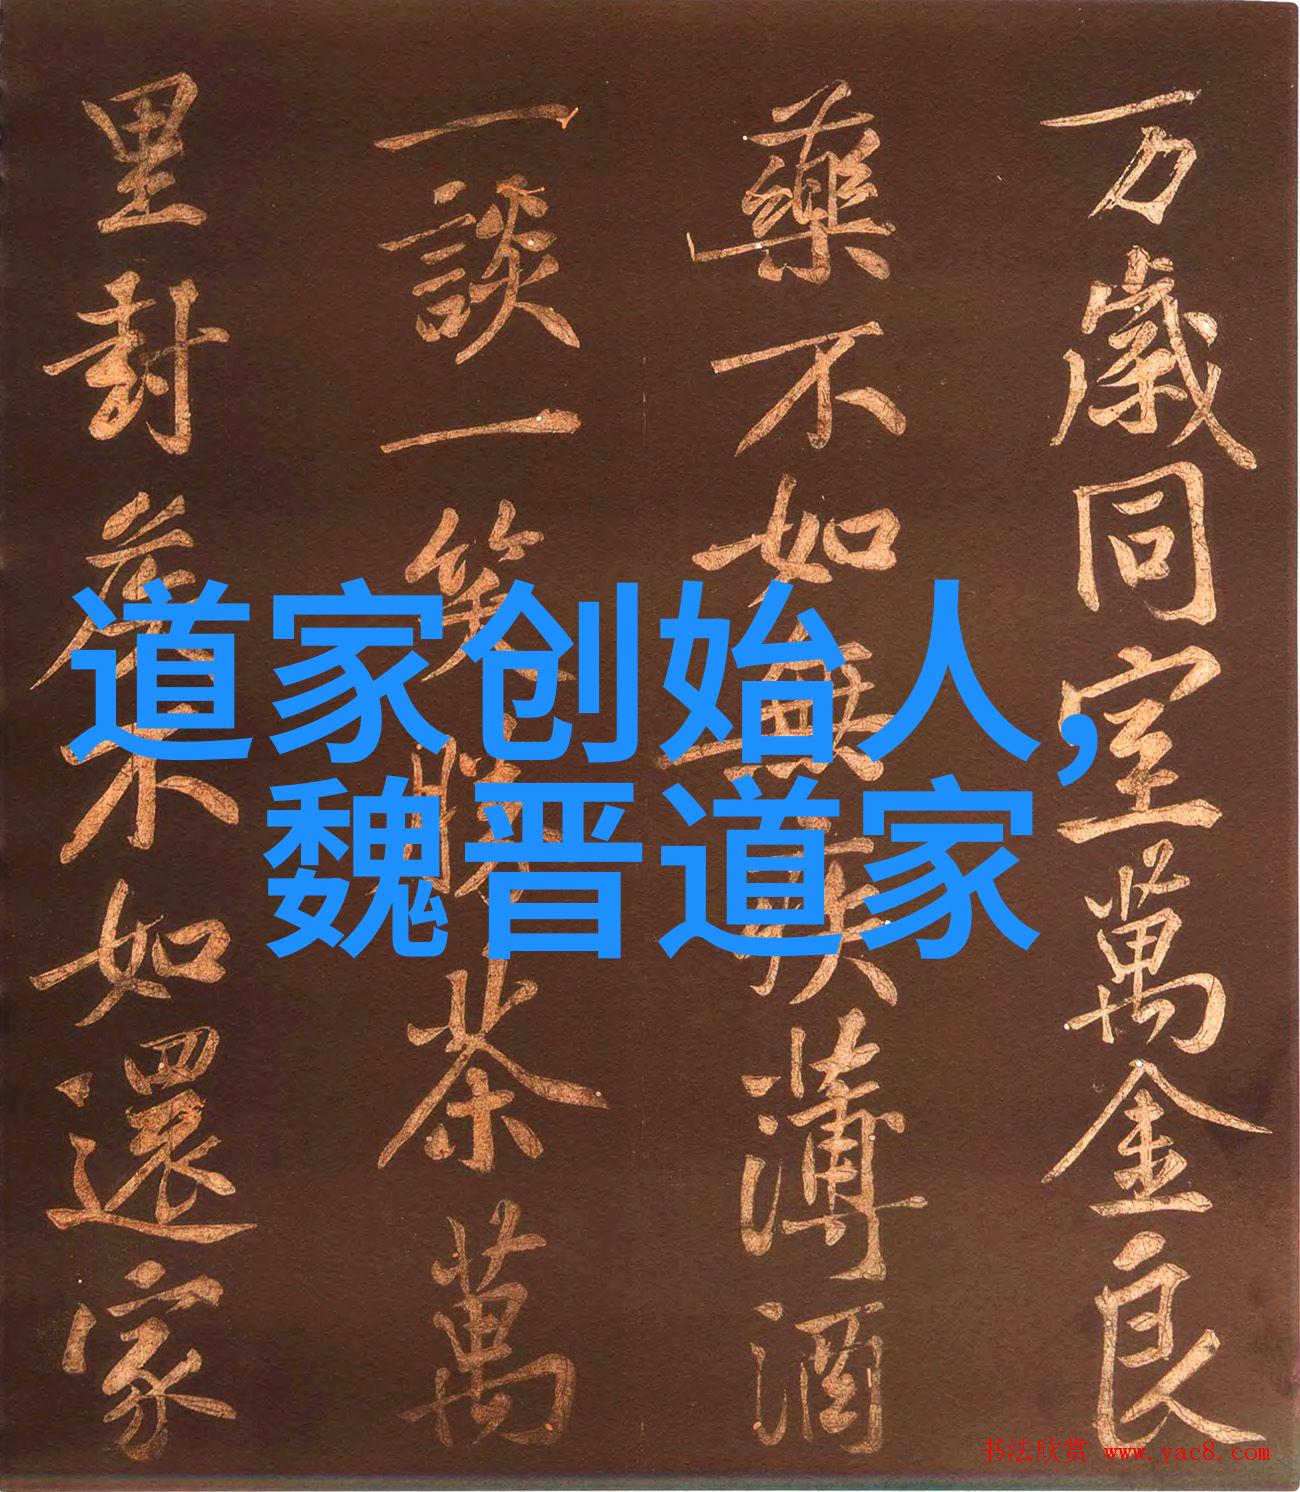 万歲同室萬金良
藥不如無疾薄酒
一談一笑勝茶萬
里封侯不如還家
道家创始人,
魏晋道家
书法欣赏 www.yac8.com